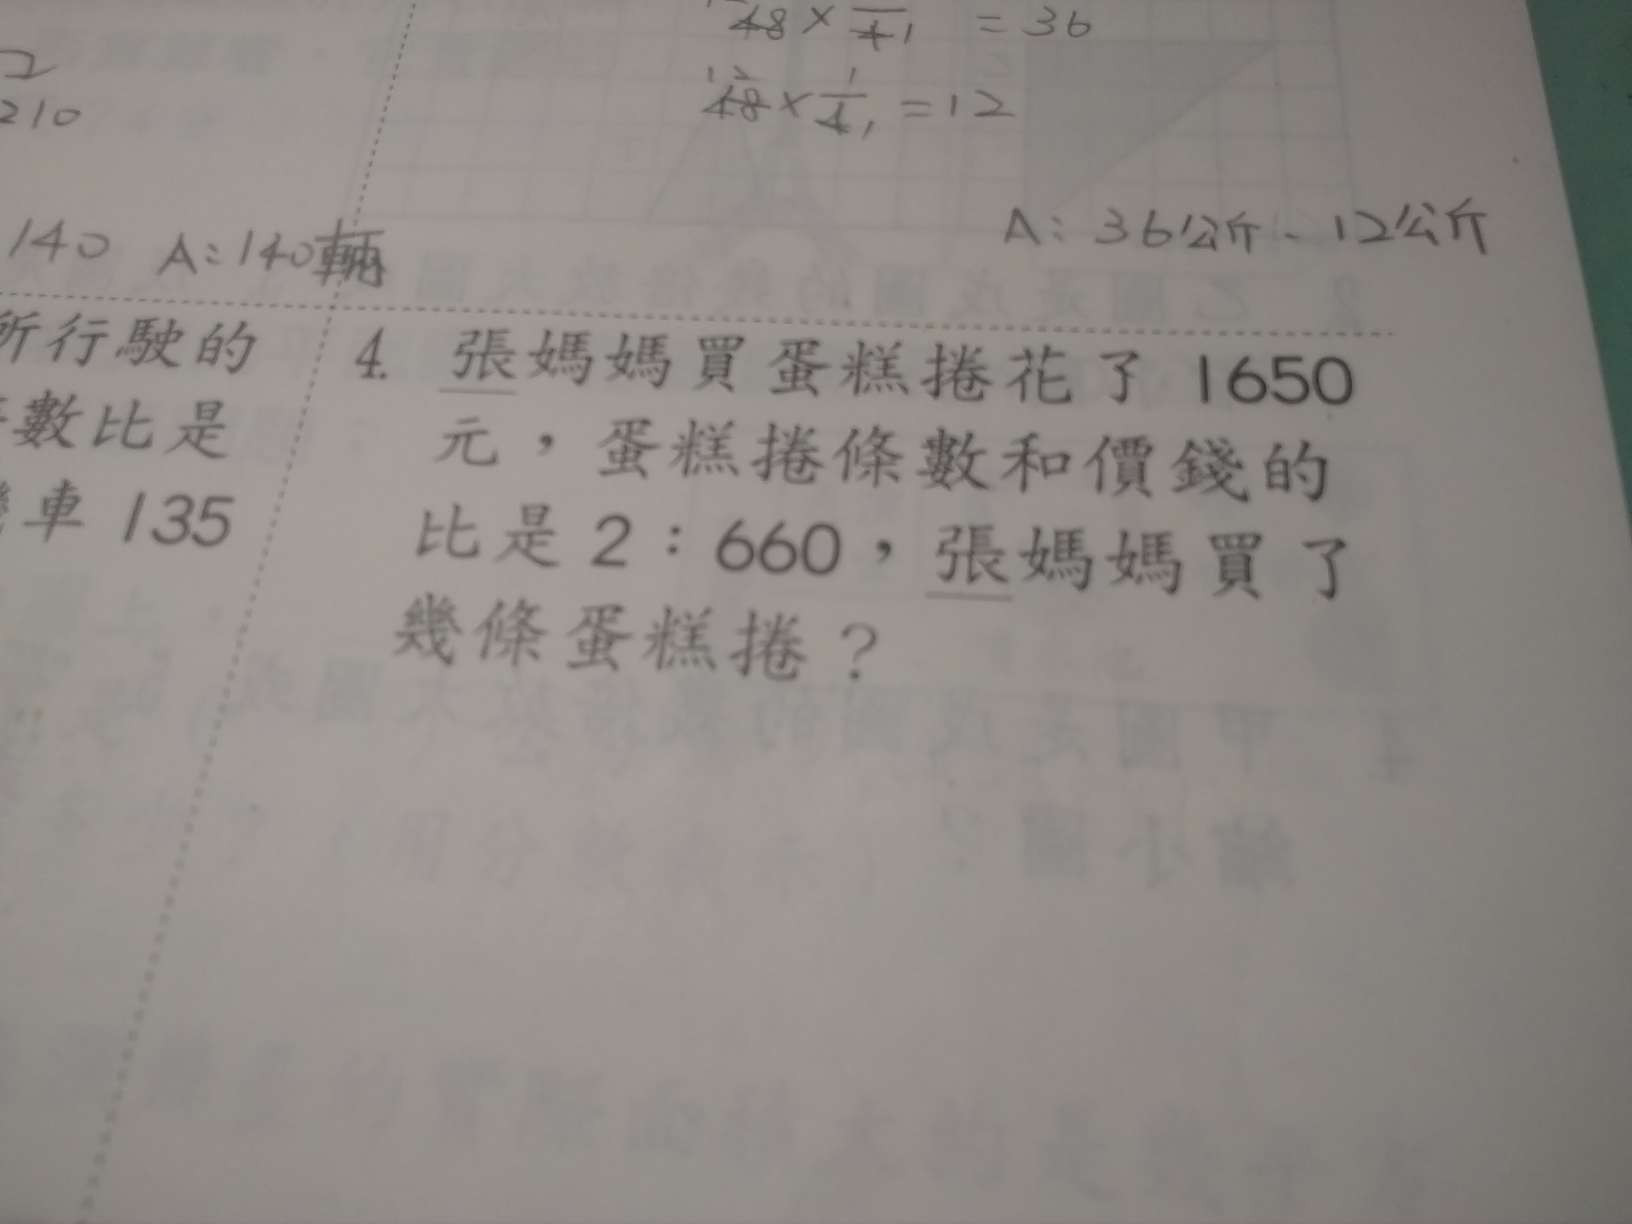 48 × 4 1 = 36
12 1
48 × 4 1 = 12
2
210
140 A:140輛
A: 36公斤、12公斤
所行駛的
數比是
車 135
4. 張媽媽買蛋糕捲花了 1650
元，蛋糕捲條數和價錢的
比是 2：660，張媽媽買了
幾條蛋糕捲？